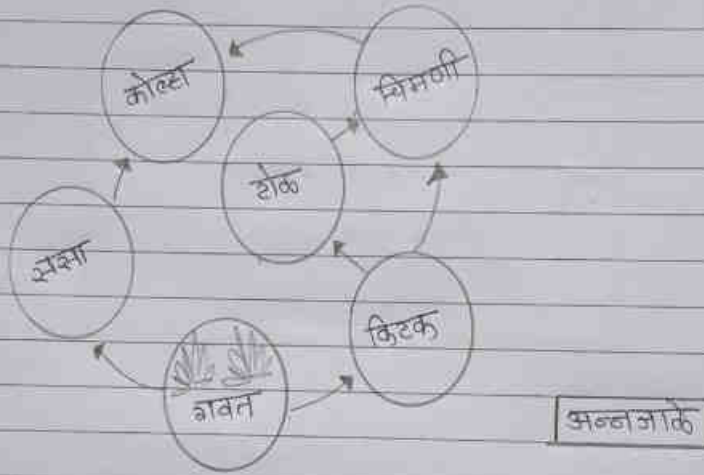 कोल्हा
चिमणी
टोळ
ससा
किटक
गवत
अन्नजाळे